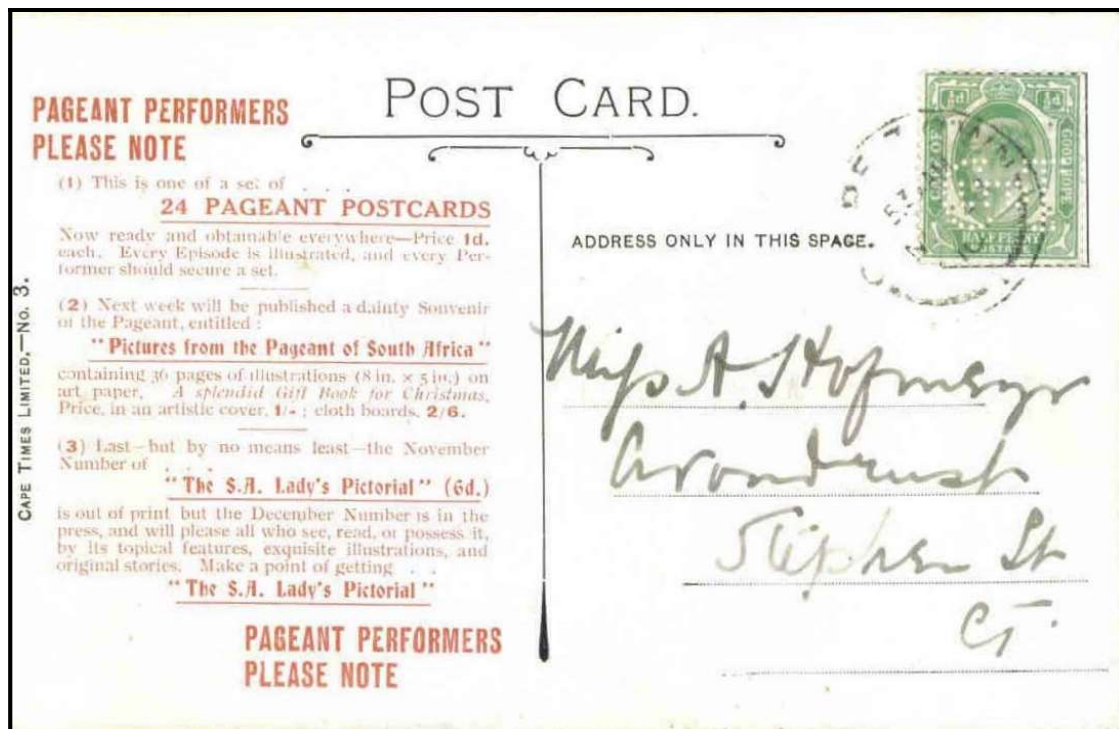 POST CARD.
PAGEANT PERFORMERS
PLEASE NOTE
(1) This is one of a set of . . . .
24 PAGEANT POSTCARDS
Now ready and obtainable everywhere—Price 1d.
each. Every Episode is illustrated, and every Per-
former should secure a set.
(2) Next week will be published a dainty Souvenir
of the Pageant, entitled :
"Pictures from the Pageant of South Africa"
containing 36 pages of illustrations (8 in. × 5 in.) on
art paper. A splendid Gift Book for Christmas.
Price, in an artistic cover, 1/- ; cloth boards, 2/6.
(3) Last—but by no means least—the November
Number of . . . .
"The S.A. Lady's Pictorial" (6d.)
is out of print but the December Number is in the
press, and will please all who see, read, or possess it,
by its topical features, exquisite illustrations, and
original stories. Make a point of getting . .
"The S.A. Lady's Pictorial"
PAGEANT PERFORMERS
PLEASE NOTE
CAPE TIMES LIMITED.—No. 3.
ADDRESS ONLY IN THIS SPACE.
Miss A. Hofmeyr
Avondrust
Stephen St
CT.
½d ½d
GOOD HOPE
HALFPENNY